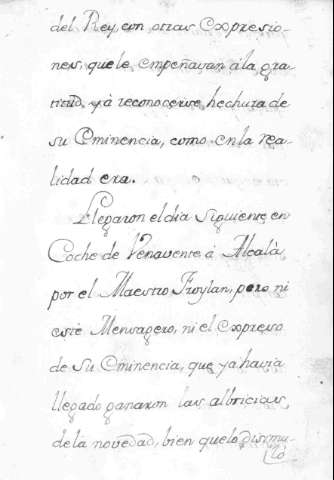 del Rey con otras Expresio-
nes, que le empeñavan á la gra-
titud, y á reconocerse hechura de
su Eminencia, como en la rea-
lidad era.
Llegaron el dia siguiente en
Coche de Venavente á Alcalà,
por el Maestro Froylan, pero ni
este Mensagero, ni el Expreso
de su Eminencia, que ya havia
llegado ganaron las albricias,
de la novedad, bien que lo disimu-
ló